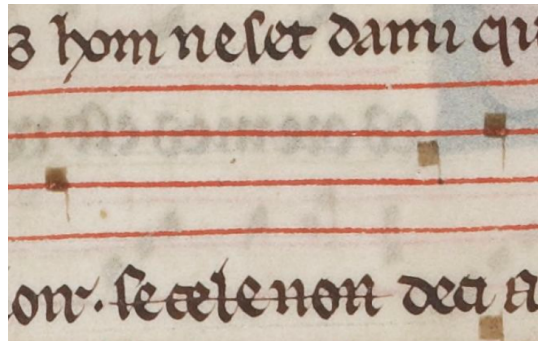 s hom ne set dami qu
oir. se cele non deci a